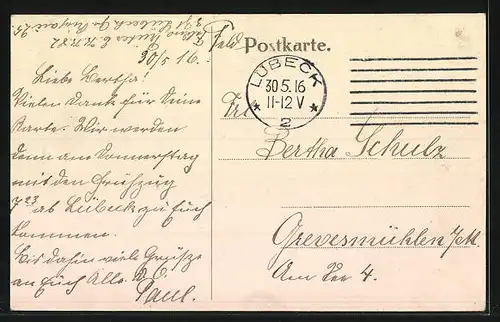 Feld Postkarte.
30/5 16.
LÜBECK
30.5.16
11-12 V
* 2 *
Liebe Bertha!
Vielen Dank für Deine
Karte. Wir werden
denn am Donnerstag
mit den Frühzug
7 23 ab Lübeck zu Euch
kommen.
Bis dahin viele Grüsse
an Euch Alle.
Paul.
Frl.
Bertha Schulz
Grevesmühlen i/M.
Am 4.